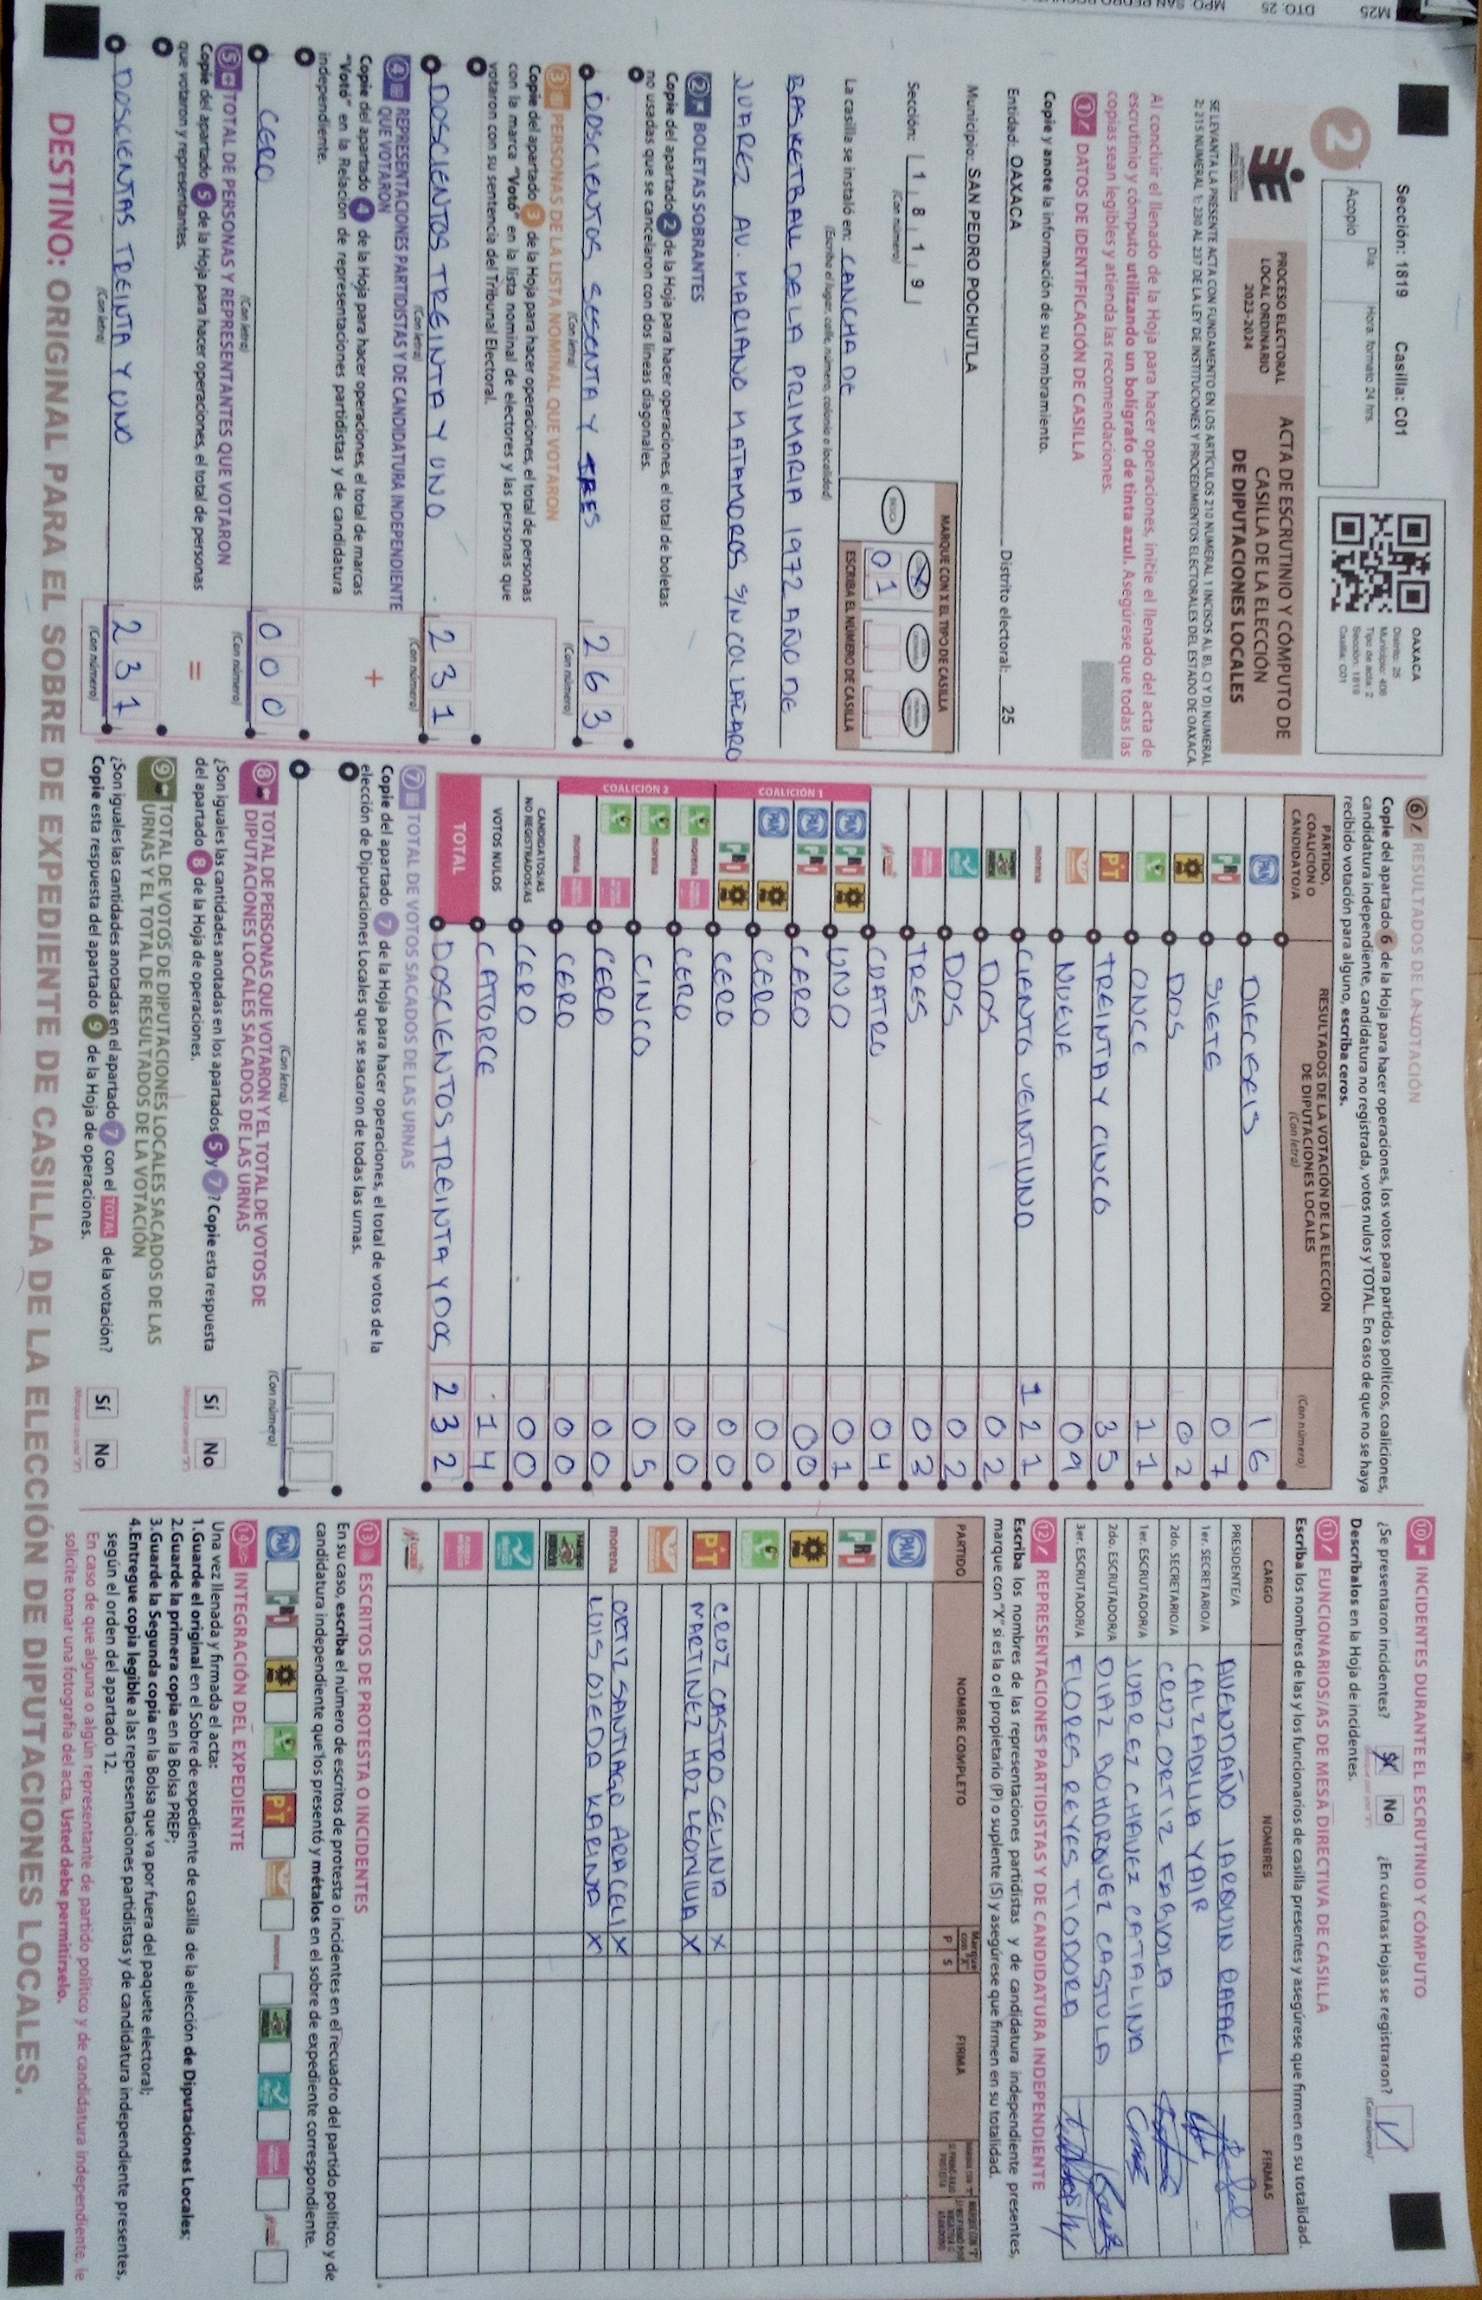 M25
DTO: 25
Sección: 1819 Casilla: C01
2
Día: Hora: formato 24 hrs.
Acopio
OAXACA
Distrito: 25
Municipio: 406
Tipo de acta: 2
Sección: 1819
Casilla: C01
PROCESO ELECTORAL
LOCAL ORDINARIO
2023-2024
ACTA DE ESCRUTINIO Y CÓMPUTO DE
CASILLA DE LA ELECCIÓN
DE DIPUTACIONES LOCALES
SE LEVANTA LA PRESENTE ACTA CON FUNDAMENTO EN LOS ARTÍCULOS 210 NUMERAL 1 INCISOS A), B), C) Y D) NUMERAL
2; 215 NUMERAL 1; 230 AL 237 DE LA LEY DE INSTITUCIONES Y PROCEDIMIENTOS ELECTORALES DEL ESTADO DE OAXACA.
Al concluir el llenado de la Hoja para hacer operaciones, inicie el llenado del acta de
escrutinio y cómputo utilizando un bolígrafo de tinta azul. Asegúrese que todas las
copias sean legibles y atienda las recomendaciones.
1 DATOS DE IDENTIFICACIÓN DE CASILLA
Copie y anote la información de su nombramiento.
Entidad: OAXACA Distrito electoral: 25
Municipio: SAN PEDRO POCHUTLA
Sección: 1 8 1 9
(Con número)
MARQUE CON X EL TIPO DE CASILLA
BÁSICA X
ESCRIBA EL NÚMERO DE CASILLA 01
La casilla se instaló en: CANCHA DE
(Escriba el lugar, calle, número, colonia o localidad)
BASKETBALL DE LA PRIMARIA 1972 AÑO DE
JUAREZ AV. MARIANO MATAMOROS S/N COL LAZARO
2 BOLETAS SOBRANTES
Copie del apartado 2 de la Hoja para hacer operaciones, el total de boletas
no usadas que se cancelaron con dos líneas diagonales.
DOSCIENTOS SESENTA Y TRES 263
(Con letra) (Con número)
3 PERSONAS DE LA LISTA NOMINAL QUE VOTARON
Copie del apartado 3 de la Hoja para hacer operaciones, el total de personas
con la marca "Votó" en la lista nominal de electores y las personas que
votaron con su sentencia del Tribunal Electoral.
DOSCIENTOS TREINTA Y UNO 231
(Con letra) (Con número)
4 REPRESENTACIONES PARTIDISTAS Y DE CANDIDATURA INDEPENDIENTE
QUE VOTARON
+
Copie del apartado 4 de la Hoja para hacer operaciones, el total de marcas
"Votó" en la Relación de representaciones partidistas y de candidatura
independiente.
CERO 000
(Con letra) (Con número)
5 TOTAL DE PERSONAS Y REPRESENTANTES QUE VOTARON
=
Copie del apartado 5 de la Hoja para hacer operaciones, el total de personas
que votaron y representantes.
DOSCIENTAS TREINTA Y UNO 231
(Con letra) (Con número)
6 RESULTADOS DE LA VOTACIÓN
Copie del apartado 6 de la Hoja para hacer operaciones, los votos para partidos políticos, coaliciones,
candidatura independiente, candidatura no registrada, votos nulos y TOTAL. En caso de que no se haya
recibido votación para alguno, escriba ceros.
PARTIDO, COALICIÓN O CANDIDATO/A
RESULTADOS DE LA VOTACIÓN DE LA ELECCIÓN
DE DIPUTACIONES LOCALES
(Con letra) (Con número)
PAN DIECESEIS 16
PRI SIETE 07
PRD DOS 02
ONCE 11
PT TREINTA Y CINCO 35
NUEVE 09
morena CIENTO VEINTIUNO 121
DOS 02
DOS 02
TRES 03
CUATRO 04
COALICIÓN 1
PAN PRI PRD UNO 01
PAN PRI CERO 00
PAN PRD CERO 00
PRI PRD CERO 00
COALICIÓN 2
morena CERO 00
morena CINCO 05
CERO 00
morena CERO 00
CANDIDATOS/AS
NO REGISTRADOS/AS CERO 00
VOTOS NULOS CATORCE 14
TOTAL DOSCIENTOS TREINTA Y DOS 232
7 TOTAL DE VOTOS SACADOS DE LAS URNAS
Copie del apartado 7 de la Hoja para hacer operaciones, el total de votos de la
elección de Diputaciones Locales que se sacaron de todas las urnas.
(Con letra) (Con número)
8 TOTAL DE PERSONAS QUE VOTARON Y EL TOTAL DE VOTOS DE
DIPUTACIONES LOCALES SACADOS DE LAS URNAS
¿Son iguales las cantidades anotadas en los apartados 5 y 7? Copie esta respuesta
del apartado 8 de la Hoja de operaciones. Sí No
9 TOTAL DE VOTOS DE DIPUTACIONES LOCALES SACADOS DE LAS
URNAS Y EL TOTAL DE RESULTADOS DE LA VOTACIÓN
¿Son iguales las cantidades anotadas en el apartado 7 con el TOTAL de la votación?
Copie esta respuesta del apartado 9 de la Hoja de operaciones. Sí No
10 INCIDENTES DURANTE EL ESCRUTINIO Y CÓMPUTO
¿Se presentaron incidentes? No ¿En cuántas Hojas se registraron?
(Con número)
Descríbalos en la Hoja de incidentes.
11 FUNCIONARIOS/AS DE MESA DIRECTIVA DE CASILLA
Escriba los nombres de las y los funcionarios de casilla presentes y asegúrese que firmen en su totalidad.
CARGO NOMBRES FIRMAS
PRESIDENTE/A AVENDAÑO JARQUIN RAFAEL
1er. SECRETARIO/A CALZADILLA YAIR
2do. SECRETARIO/A CRUZ ORTIZ FABIOLA
1er. ESCRUTADOR/A JUAREZ CHAVEZ CATALINA
2do. ESCRUTADOR/A DIAZ BOHORQUEZ CASTULA
3er. ESCRUTADOR/A FLORES REYES TIODORA
12 REPRESENTACIONES PARTIDISTAS Y DE CANDIDATURA INDEPENDIENTE
Escriba los nombres de las representaciones partidistas y de candidatura independiente presentes,
marque con "X" si es la o el propietario (P) o suplente (S) y asegúrese que firmen en su totalidad.
PARTIDO NOMBRE COMPLETO P S FIRMA
PAN
PRI
PRD
PT CRUZ CASTRO CELINA X
MARTINEZ HDZ LEONILA X
morena ORTIZ SANTIAGO ARACELI X
LUIS OJEDA KARINA X
13 ESCRITOS DE PROTESTA O INCIDENTES
En su caso, escriba el número de escritos de protesta o incidentes en el recuadro del partido político y de
candidatura independiente que los presentó y métalos en el sobre de expediente correspondiente.
PAN PRI PRD PT morena
14 INTEGRACIÓN DEL EXPEDIENTE
Una vez llenada y firmada el acta:
1.Guarde el original en el Sobre de expediente de casilla de la elección de Diputaciones Locales;
2.Guarde la primera copia en la Bolsa PREP;
3.Guarde la Segunda copia en la Bolsa que va por fuera del paquete electoral;
4.Entregue copia legible a las representaciones partidistas y de candidatura independiente presentes,
según el orden del apartado 12.
En caso de que alguna o algún representante de partido político y de candidatura independiente, le
solicite tomar una fotografía del acta, Usted debe permitírselo.
DESTINO: ORIGINAL PARA EL SOBRE DE EXPEDIENTE DE CASILLA DE LA ELECCIÓN DE DIPUTACIONES LOCALES.